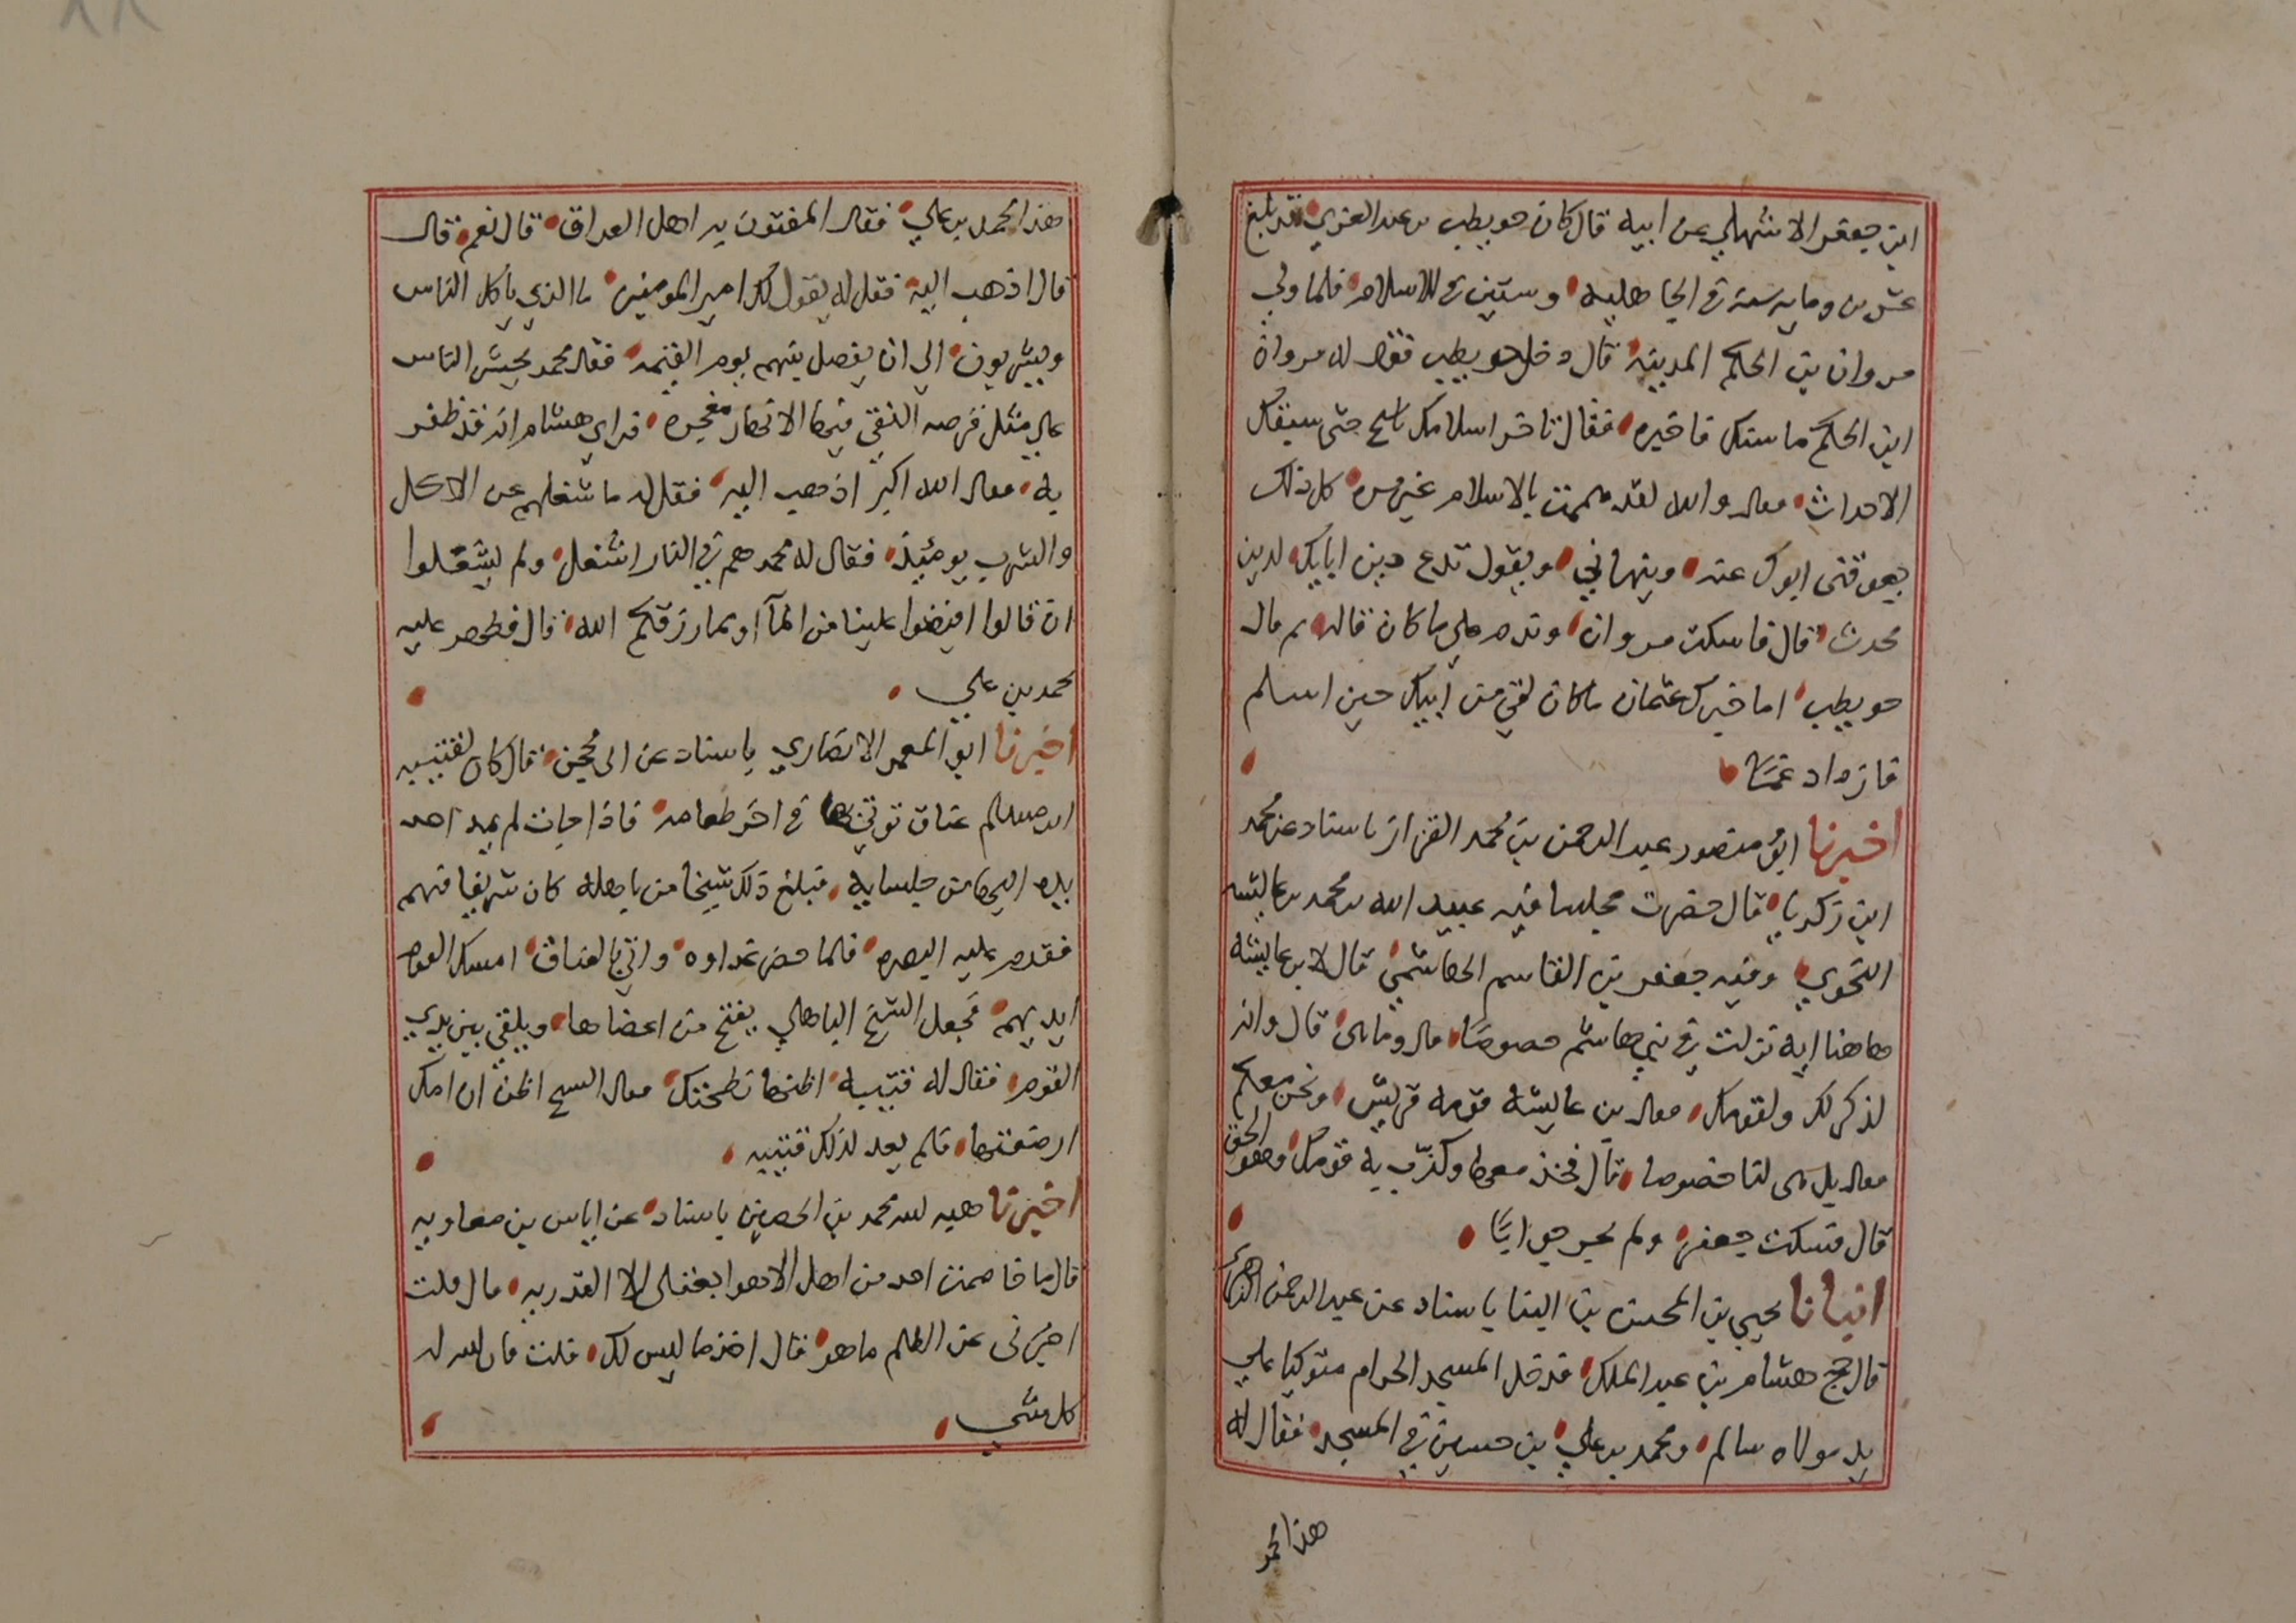 ابن جعفر الاشهلي عن ابيه قال كان حويطب بن عبد العزي قد بلغ
عشرين وماية سنة في الجاهلية وستين في الاسلام فلما ولي
مروان بن الحكم المدينة قال دخل حويطب فقال له مروان
ابن الحكم ما سنك فاخبره فقال تاخر اسلامك ياشيخ حتى سبقك
الاحداث فقال والله لقد هممت بالاسلام غير مره كل ذلك
يعوقني ابوك عنه وينهاني ويقول تدع دين ابايك لدين
محدث قال فاسكت مروان وندم علي ما كان قال له ثم قال
حويطب اما خبرك عثمان ما كان لقي من ابيك حين اسلم
فازداد غما
اخبرنا ابو منصور عبد الرحمن بن محمد القزاز باسناد عن محمد
ابن زكريا قال حضرت مجلسا فيه عبيد الله بن محمد بن عايشه
التحوي وفيه جعفر بن القاسم الهاشمي قال لابن عايشه
هاهنا اية نزلت في بني هاشم خصوصا قال وما هي قال وانه
لذكر لك ولقومك فقال بن عايشه قومه قريش ونحن معكم
فقال بل هي لنا خصوصا قال فخذ معها وكذب به قومك وهو الحق
قال فسكت جعفر ولم يحر جوابا
انبانا يحيي بن الحسن بن البنا باسناد عن عبد الرحمن الزهري
قال حج هشام بن عبد الملك فدخل المسجد الحرام متوكيا علي
يد مولاه سالم ومحمد بن علي بن حسين في المسجد فقال له
هذا محمد
هذا محمد بن علي فقال المفتون به اهل العراق قال نعم قال
قال اذهب اليه فقل له يقول لك امير المومنين ما الذي ياكل الناس
ويشربون الي ان يفصل بينهم يوم القيمه فقال محمد يحشر الناس
علي مثل قرصه النقي فيها الانهار مفجره فراي هشام انه قد ظفر
به فقال الله اكبر اذهب اليه فقل له ما شغلهم عن الاكل
والشرب يومئذ فقال له محمد هم في النار اشغل ولم يشغلوا
ان قالوا افيضوا علينا من المآ او مما رزقكم الله قال فظهر عليه
محمد بن علي
اخبرنا ابو المعمر الانصاري باسناد عن ابي محجن قال كان لقتيبه
ابن مسلم عناق توتي بها في اخر طعامه فاذا جات لم يمد احد
يده اليها من جلسايه فبلغ ذلك شيخا من باهله كان شريفا فيهم
فقدم عليه البصره فلما حضر غداوه واتي بالعناق امسك القوم
ايديهم فجعل الشيخ الباهلي يفتح من اعضاها ويلقي بين يدي
القوم فقال له قتيبه اظنها نطحتك فقال الشيخ اظن ان امك
ارضعتها فلم يعد لذلك قتيبه
اخبرنا هبه الله محمد بن الحصين باسناد عن اياس بن معاويه
قال ما خاصمت احد من اهل الاهوا بعقلي الا القدريه قال قلت
اخبرني عن الظلم ما هو قال اخذ ما ليس لك قلت فان لله له
كل شي